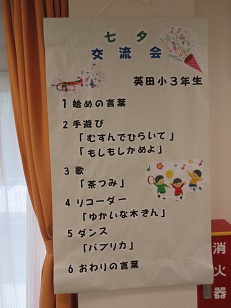 七夕
交流会
英田小3年生
1 始めの言葉
2 手遊び
「むすんでひらいて」
「もしもしかめよ」
3 歌
「茶つみ」
4 リコーダー
「ゆかいな木きん」
5 ダンス
「パプリカ」
6 おわりの言葉
消火器